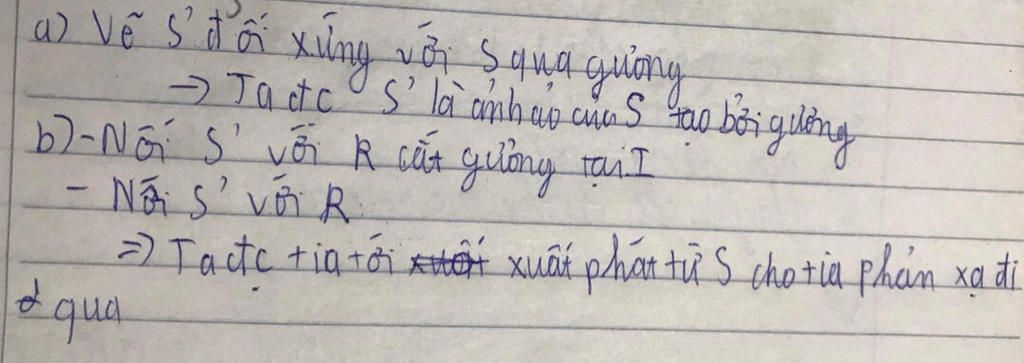 a) Vẽ S' đối xứng với S qua gương
→ Ta đc S' là ảnh ảo của S tạo bởi gương
b) - Nối S' với R cắt gương tại I
- Nối S' với R
⇒ Ta đc tia tới xuất phát từ S cho tia phản xạ đi
qua